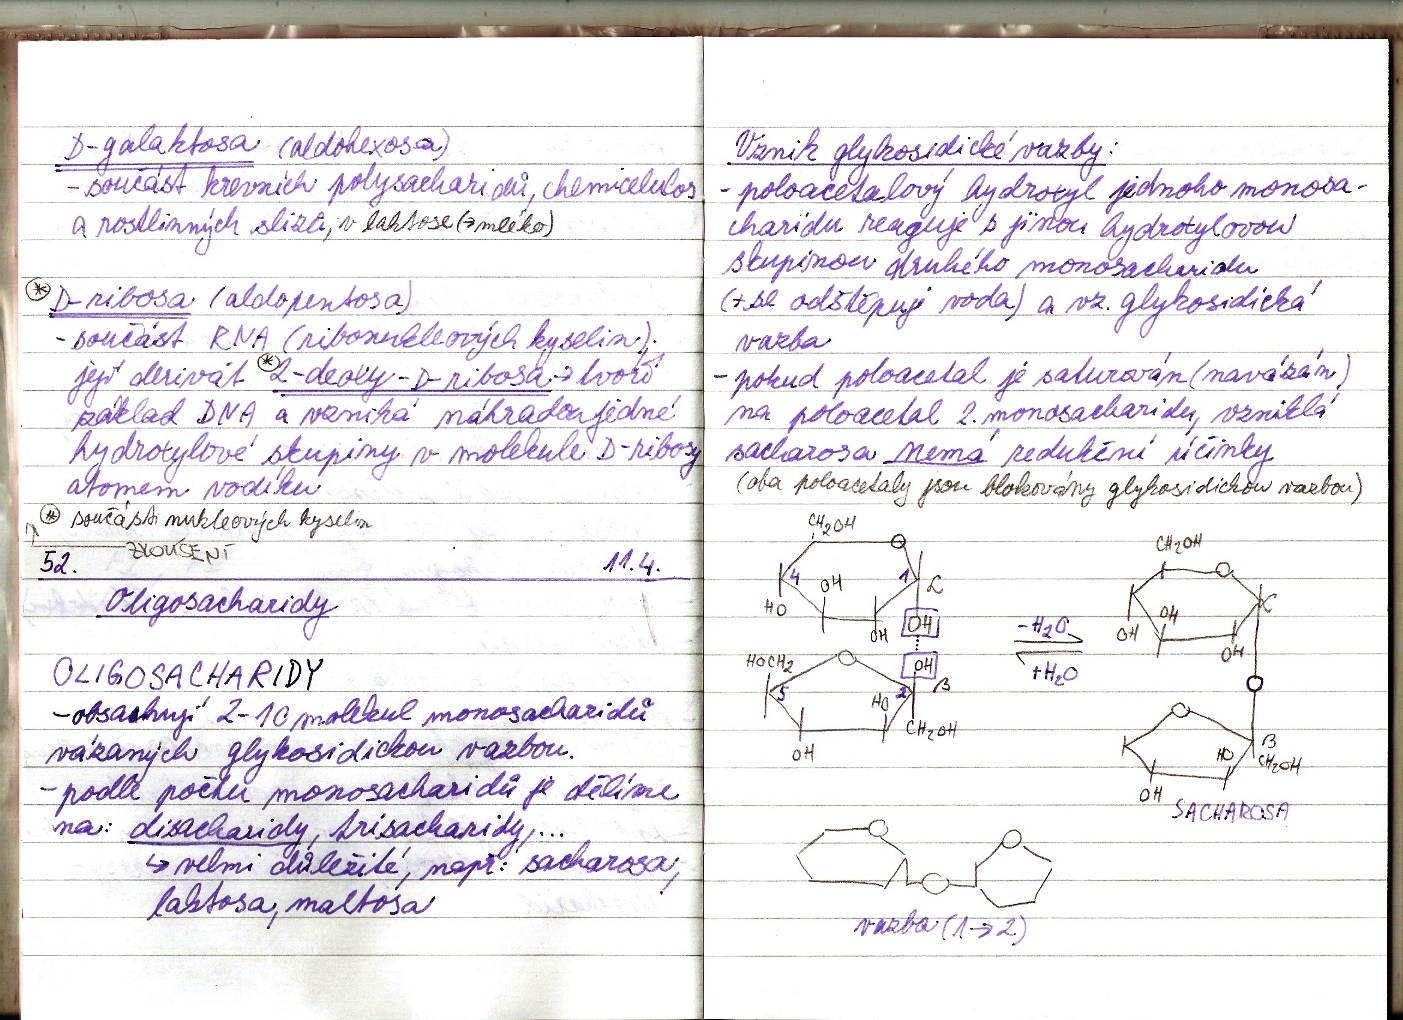 D-galaktosa (aldohexosa)
- součást krevních polysacharidů, chemicelulos
a rostlinných slizů, v laktose (→ mléko)
* D-ribosa (aldopentosa)
- součást RNA (ribonukleových kyselin);
její derivát * 2-deoxy-D-ribosa → tvoří
základ DNA a vzniká náhradou jedné
hydroxylové skupiny v molekule D-ribosy
atomem vodíku
* součásti nukleových kyselin
ZKOUŠENÍ
52. 11.4.
Oligosacharidy
OLIGOSACHARIDY
- obsahují 2-10 molekul monosacharidů
vázaných glykosidickou vazbou.
- podle počtu monosacharidů je dělíme
na: disacharidy, trisacharidy, ...
↳ velmi důležité, např: sacharosa,
laktosa, maltosa
Vznik glykosidické vazby:
- poloacetalový hydroxyl jednoho monosa-
charidu reaguje s jinou hydroxylovou
skupinou druhého monosacharidu
(+ se odštěpuje voda) a vz. glykosidická
vazba
- pokud poloacetal je saturován (navázán)
na poloacetal 2. monosacharidu, vzniklá
sacharosa nemá redukční účinky
(oba poloacetaly jsou blokovány glykosidickou vazbou)
CH2OH O
4 OH 1 α
HO OH OH
HOCH2 O OH
5 HO 2 β
OH CH2OH
-H2O
+H2O
CH2OH O
OH OH OH α
O
O
HO β
CH2OH
OH
SACHAROSA
O O O
vazba (1→2)